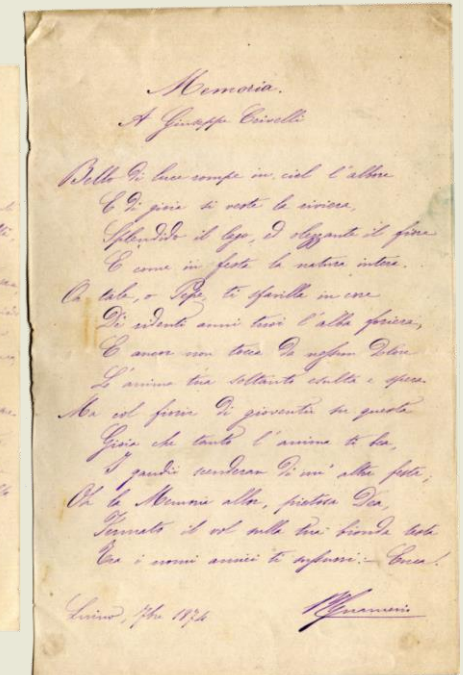 Memoria.
A Giuseppe Crivelli
Bello di luce rompe in ciel l'albore
E di gioia si veste la riviera,
Splendido il lago, ed olezzante il fiore
E come in festa la natura intera.
Or tale, o Pepe, ti sfavilla in core
Di ridenti anni tuoi l'alba foriera,
E ancor non tocca da nessun dolore
L'anima tua soltanto esulta e spera.
Ma col fiorir di gioventù su questa
Gioia che tanto l'anima ti bea,
I gaudii scenderan di un'altra festa;
Oh la Memoria allor, pietosa Dea,
Fermato il vol sulla tua bionda testa
Tra i nomi amici ti susurri:
7bre 1874